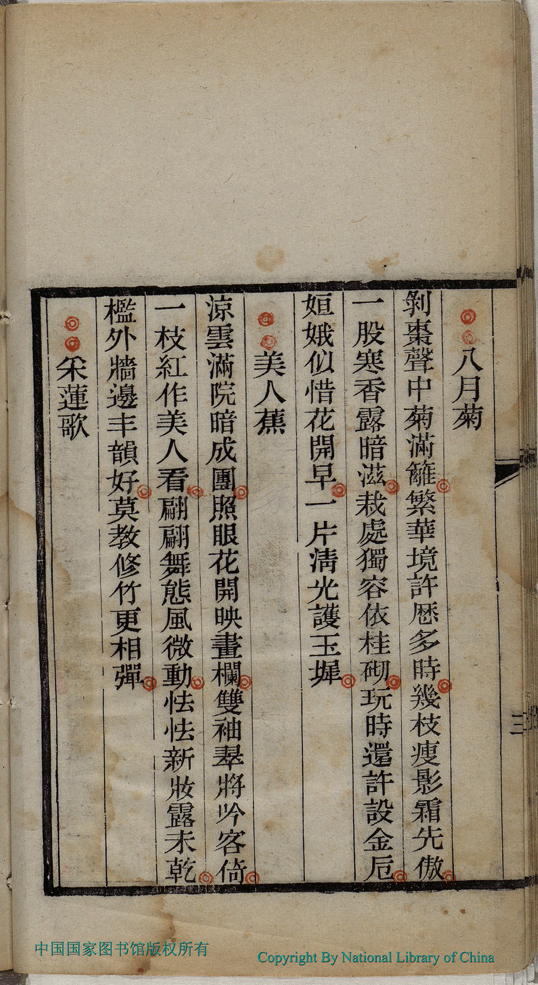 八月菊
剝棗聲中菊滿籬繁華境許歷多時幾枝瘦影霜先傲
一股寒香露暗滋栽處獨容依桂砌玩時還許設金卮
姮娥似惜花開早一片清光護玉墀
美人蕉
涼雲滿院暗成團照眼花開映畫欄雙袖翠將吟客倚
一枝紅作美人看翩翩舞態風微動怯怯新妝露未乾
檻外牆邊丰韻好莫教修竹更相彈
采蓮歌
三
中国国家图书馆版权所有
Copyright By National Library of China